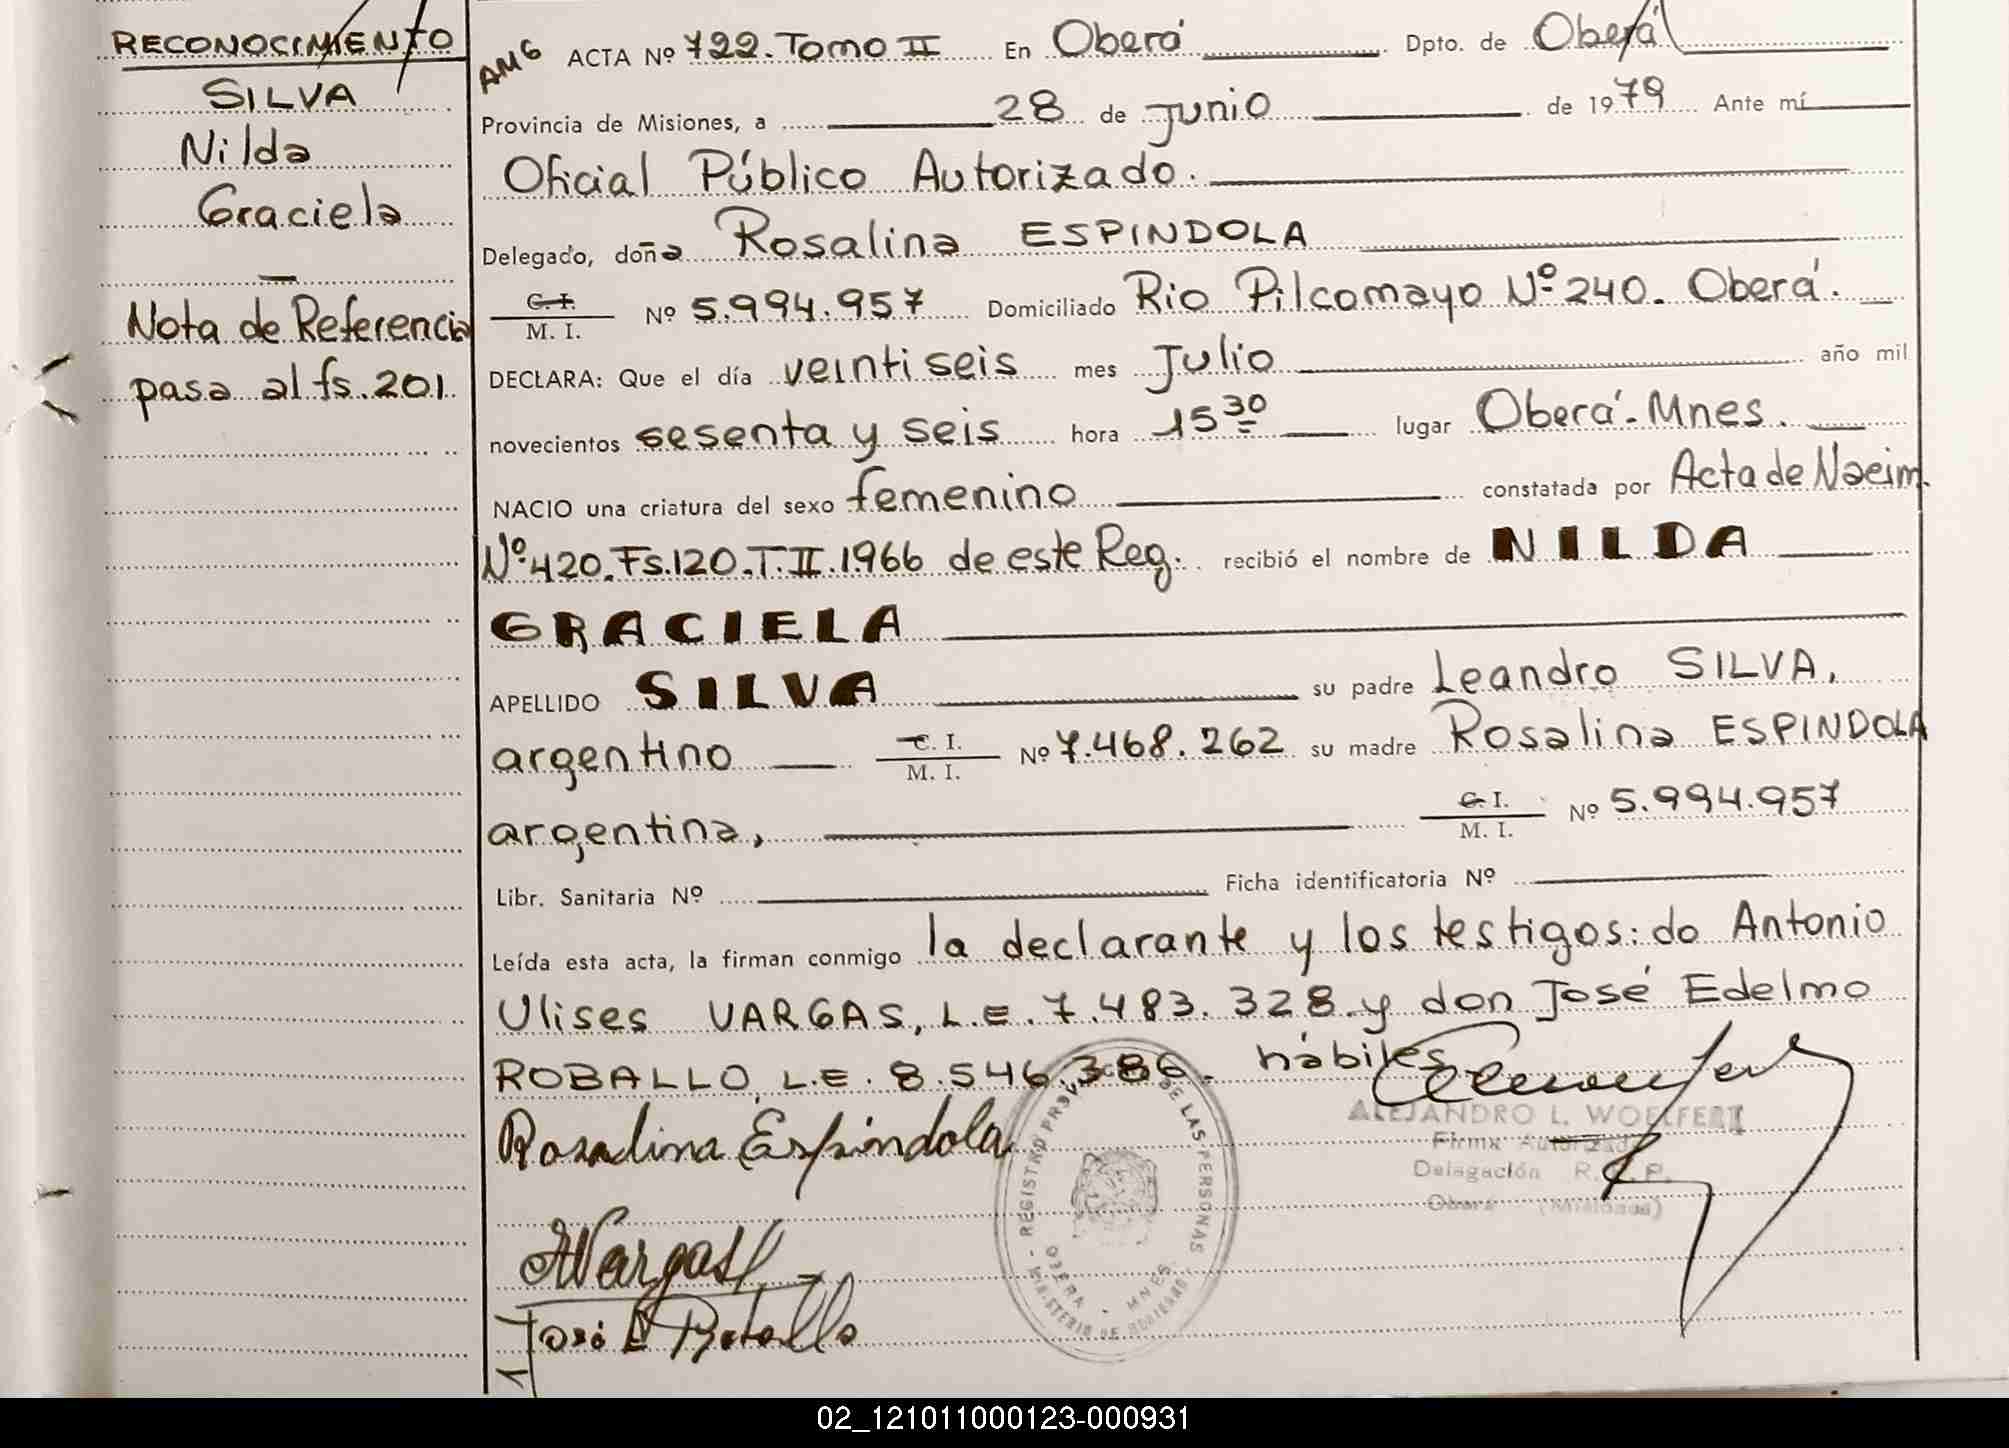 RECONOCIMIENTO
SILVA
Nilda
Graciela
Nota de Referencia
pasa al fs. 201.
AMG ACTA Nº 722. Tomo II En Oberá Dpto. de Oberá
Provincia de Misiones, a 28 de Junio de 1979 Ante mí
Oficial Público Autorizado.
Delegado, doña Rosalina ESPINDOLA
C. I.
M. I. Nº 5.994.957 Domiciliado Rio Pilcomayo Nº 240. Oberá.
DECLARA: Que el día veintiseis mes Julio año mil
novecientos sesenta y seis hora 15 30 lugar Oberá.-Mnes.
NACIO una criatura del sexo femenino constatada por Acta de Nacim.
Nº 420. Fs. 120. T. II. 1966 de este Reg. recibió el nombre de NILDA
GRACIELA
APELLIDO SILVA su padre Leandro SILVA,
argentino C. I.
M. I. Nº 7.468.262 su madre Rosalina ESPINDOLA
argentina, C. I.
M. I. Nº 5.994.957
Libr. Sanitaria Nº Ficha identificatoria Nº
Leída esta acta, la firman conmigo la declarante y los testigos: do Antonio
Ulises VARGAS, L.E. 7.483.328 y don José Edelmo
ROBALLO, L.E. 8.546.386. hábiles
Rosalina Espindola
AVargas
José E Roballo
REGISTRO PROV. DE LAS PERSONAS
OBERA - MNES
MINISTERIO DE GOBIERNO
ALEJANDRO L. WOELFERT
Firma Autorizada
Delegación R. P. P.
Oberá (Misiones)
02_121011000123-000931